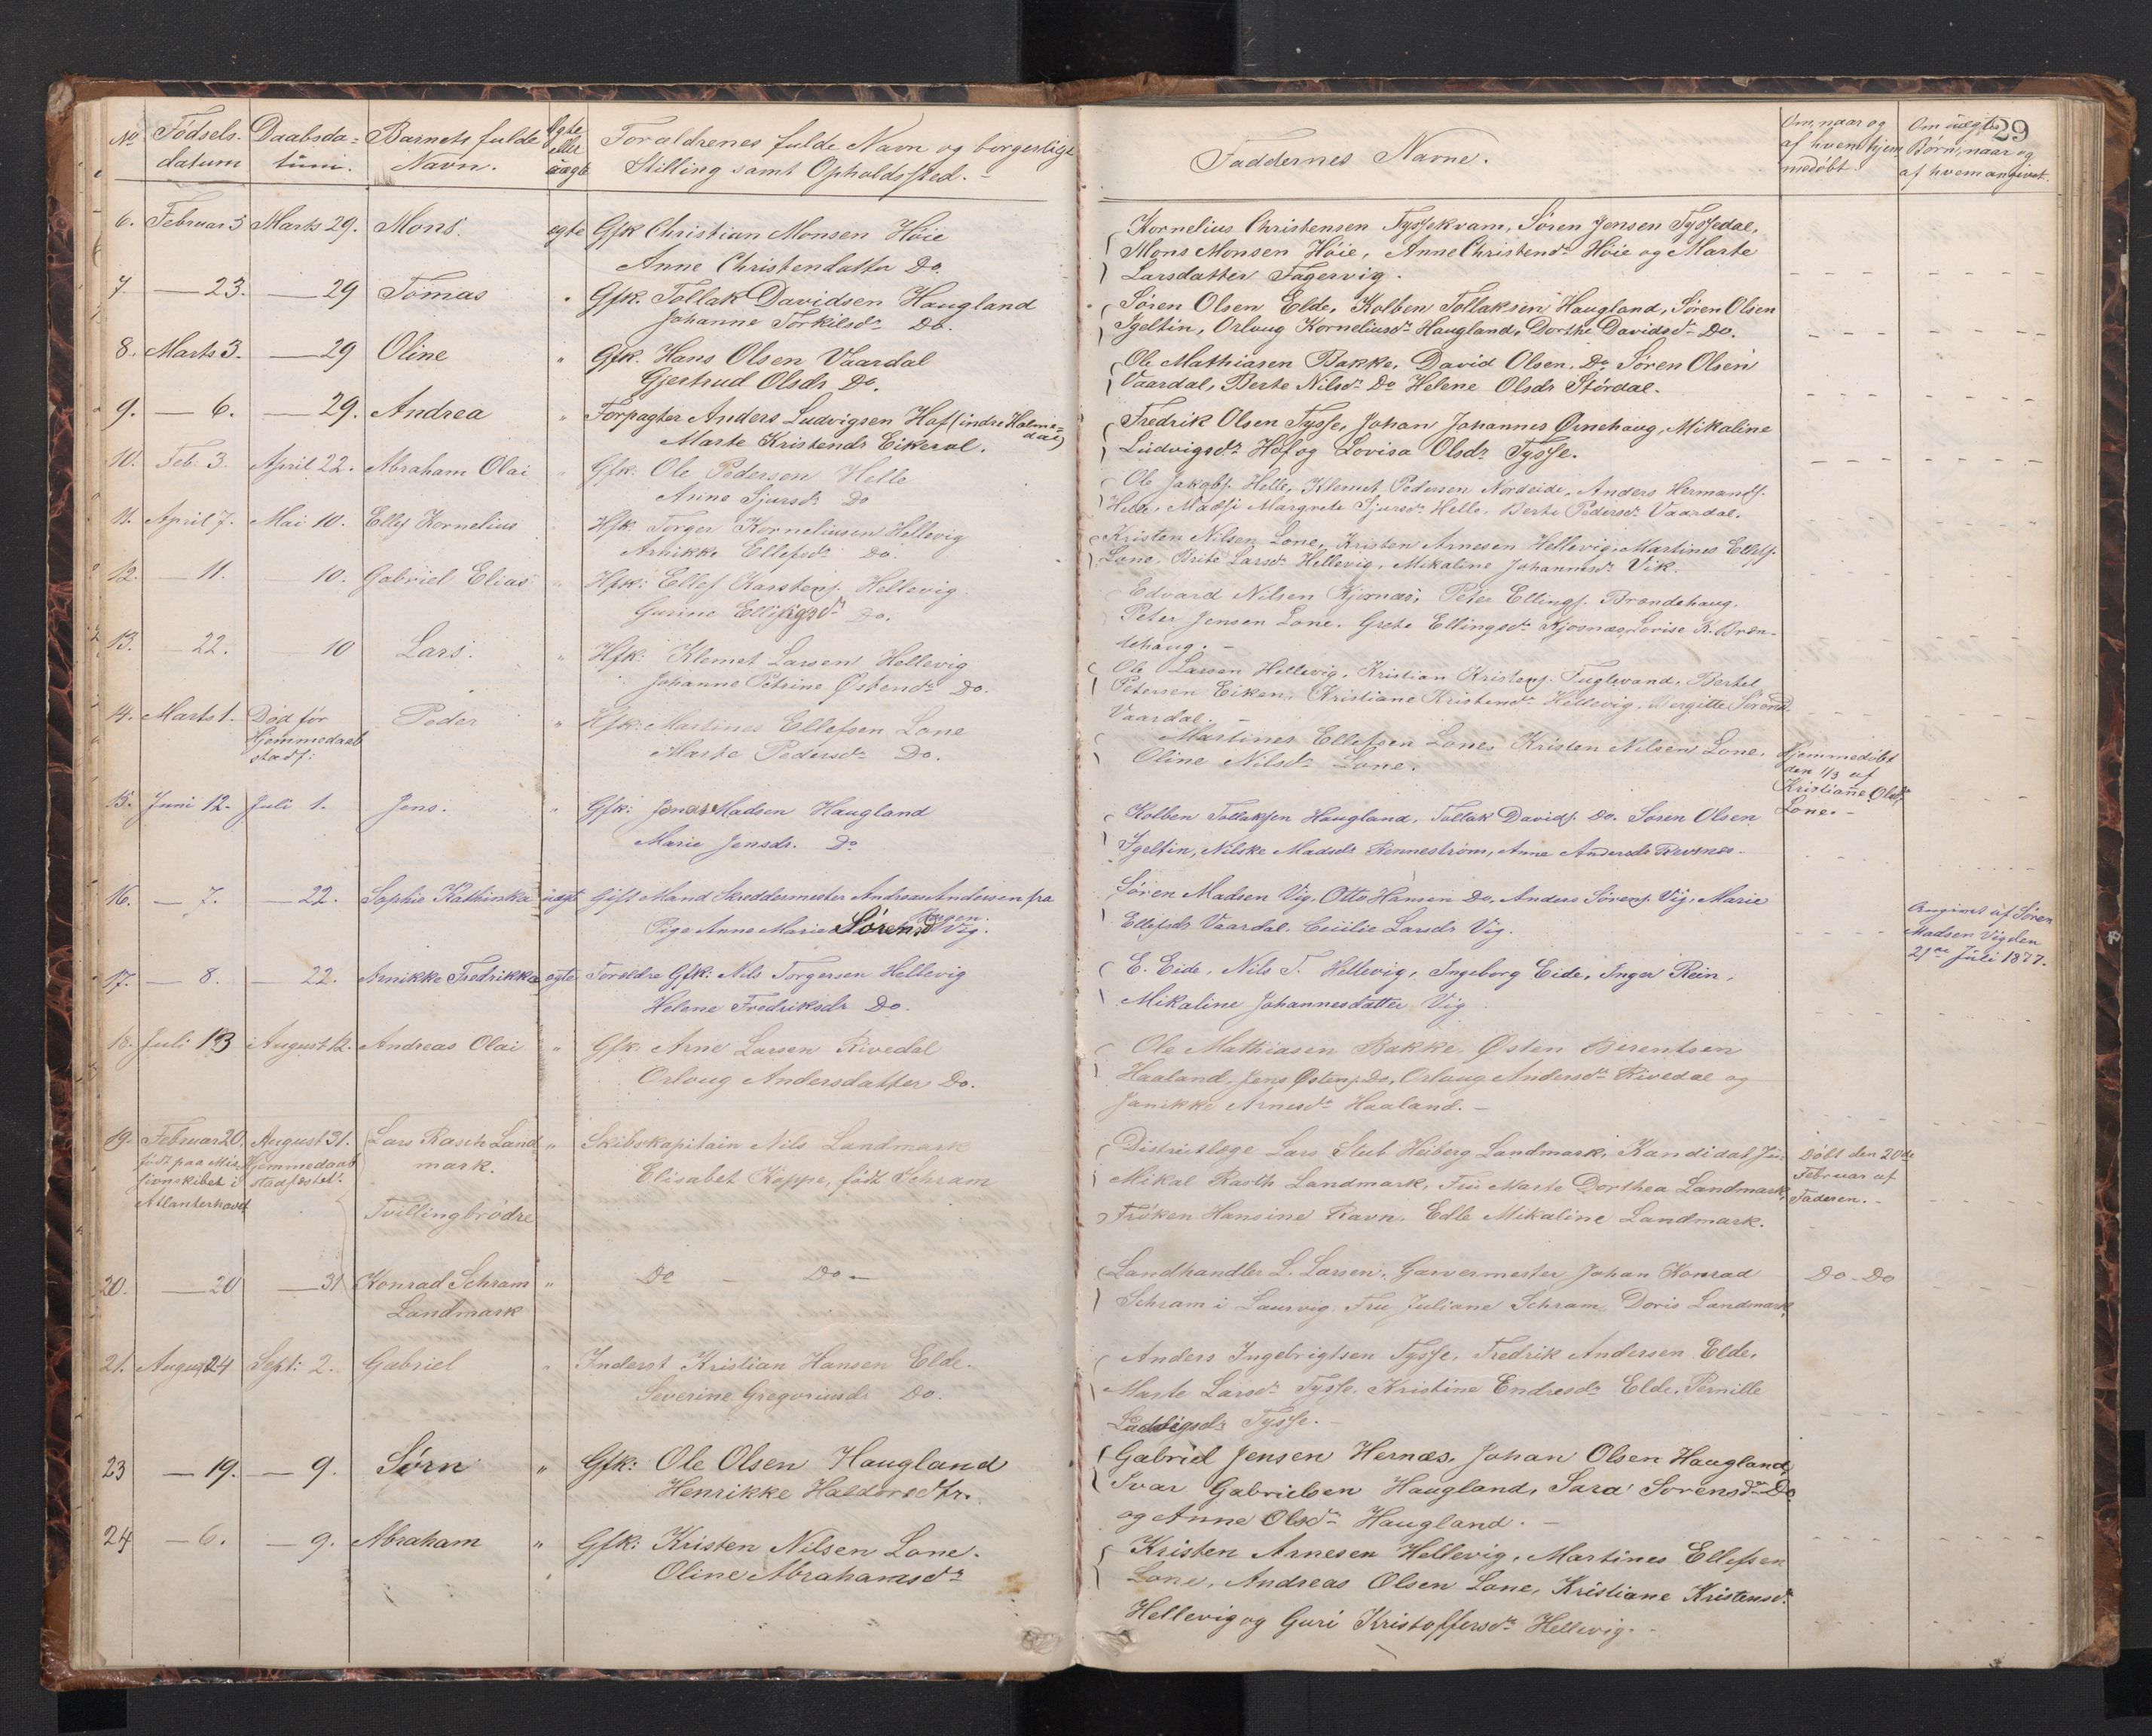 29
No Fødsels- Daabsda- Barnets fulde Egte Forældrenes fulde Navn og borgerlige
datum tum. Navn. eller uægte Stilling samt Opholdssted.
Faddernes Navne.
Om, naar og af hvem hjemmedøbt.
Om uægte Børn, naar og af hvem angivet.
6. Februar 3 Marts 29. Mons. egte Gfk Christian Monsen Höie
Anne Christendatter Do.
Kornelius Christensen Tyssekvam, Sören Jensen Tyssedal,
Mons Monsen Höie, Anne Christensdr Höie og Marte
Larsdatter Fagervig.
7. — 23. — 29 Tomas " Gfk. Tollak Davidsen Haugland
Johanne Torkilsdr Do.
Sören Olsen Elde, Kolben Tollaksen Haugland, Sören Olsen
Igeltin, Orloug Korneliusdr Haugland, Dorthe Davidsdr Do.
8. Marts 3. — 29 Oline " Gfk. Hans Olsen Vaardal
Gjertrud Olsdr Do.
Ole Mathiasen Bakke, David Olsen Do. Sören Olsen
Vaardal, Berte Nilsdr Do Helene Olsdr Stördal.
9. — 6. — 29. Andrea " Forpagter Anders Ludvigsen Hof (indre Holmedal)
Marte Kristensdr Eikeval.
Fredrik Olsen Tysse, Johan Johannes Ørnehaug, Mikaline
Ludvigsdr Hof og Lovisa Olsdr Tysse.
10. Feb. 3. April 22. Abraham Olai " Gfk: Ole Pedersen Helle
Anne Sjursdr Do
Ole Jakobs. Helle, Klemet Pedersen Nordeide, Anders Hermands.
Helle, Madsi Margrete Sjursdr Helle, Berte Pedersdr Vaardal.
11. April 7. Mai 10. Ellef Kornelius " Hfk: Torger Korneliusen Hellevig
Arnikke Ellefsdr Do.
Kristen Nilsen Lone, Kristen Arnesen Hellevig, Martines Ellefs.
Lone, Brite Larsdr Hellevig, Mikaline Johannesdr Vik.
12. — 11. — 10. Gabriel Elias " Hfk: Ellef Karstens. Hellevig.
Gurine Ellingsdr Do.
Edvard Nilsen Kjosnæs, Peter Ellings. Brændehaug,
Peter Jensen Lone. Grete Ellingsdr Kjosnæs, Lovise K. Bræn-
dehaug. —
13. — 22. — 10 Lars. " Hfk: Klemet Larsen Hellevig
Johanne Petrine Østensdr Do.
Ole Larsen Hellevig, Kristian Kristens. Fuglevand, Bertel
Petersen Eiken, Kristiane Kristensdr Hellevig, Bergitte Sørensd.
Vaardal. —
14. Marts 1. Död før Hjemmedaab stadf: Peder " Hfk: Martines Ellefsen Lone
Marte Pedersdr Do.
Martines Ellefsen Lone, Kristen Nilsen Lone,
Oline Nilsdr Lone.
Hjemmedöbt
den 1/3 af
Kristianne Olsdr
Lone. —
15. Juni 12. Juli 1. Jens. " Gfk: Jonas Madsen Haugland
Marie Jensdr. Do
Kolben Tollaksen Haugland, Tollak Davids. Do. Sören Olsen
Igeltin, Nilske Madsdr Renneström, Anne Andersdr Revnæs.
16. — 7. — 22. Sophie Kathinka uægte Gift Mand Skreddermester Andreas Andersen fra
Bergen.
Pige Anne Marie Sörensd Vig.
Sören Madsen Vig, Otto Hansen Do, Anders Sörens. Vig, Marie
Ellefsdr Vaardal, Cecilie Larsdr Vig.
Angivet af Sören
Madsen Vig den
21de Juli 1877.
17. — 8. — 22. Arnikke Fredrikka egte Forældre Gfk: Nils Torgersen Hellevig
Helene Fredriksdr Do.
E. Eide, Nils T. Hellevig, Ingeborg Eide, Inger Rein,
Mikaline Johannesdatter Vig
18. Juli 13 August 12. Andreas Olai " Gfk: Arne Larsen Rivedal
Orloug Andersdatter Do.
Ole Mathiasen Bakke, Østen Berentsen
Haaland, Jens Østens. Do, Orloug Andersdr Rivedal og
Janikke Arnesdr Haaland. —
19. Februar 20. August 31. Lars Rasch Land- " Skibskapitain Nils Landmark
født paa Mis- Hjemmedaab mark. Elisabet Koppe, født Schram
sionskibet i stadfæstet.
Atlanterhavet
Tvillingbrødre
Distriktslæge Lars Stub Heiberg Landmark, Kandidat Jur
Mikal Rasch Landmark, Fru Marte Dorthea Landmark,
Fröken Hansine Ravn, Edle Mikaline Landmark.
Døbt den 20de
Februar af
Faderen. —
20. — 20 — 31 Konrad Schram " Do — Do —
Landmark
Landhandler L. Larsen, Garvermester Johan Konrad
Schram i Laurvig. Fru Juliane Schram, Doris Landmark
Do - Do
21. August 24 Sept: 2. Gabriel " Inderst Kristian Hansen Elde.
Severine Gregoriusdr Do.
Anders Ingebrigtsen Tysse, Fredrik Andersen Elde,
Marte Larsdr Tysse, Kristine Endresdr Elde, Pernille
Ludvigsdr Tysse. —
23 — 19. — 9. Sørn " Gfk: Ole Olsen Haugland
Henrikke Haldorsdtr.
Gabriel Jensen Hernæs, Johan Olsen Haugland,
Ivar Gabrielsen Haugland, Sara Sorensdr Do
og Anne Olsdr Haugland. —
24 — 6. — 9. Abraham " Gfk: Kristen Nilsen Lone.
Oline Abrahamsdr
Kristen Arnesen Hellevig, Martines Ellefsen
Lone, Andreas Olsen Lone, Kristiane Kristensdr
Hellevig og Guri Kristoffersdr Hellevig. —